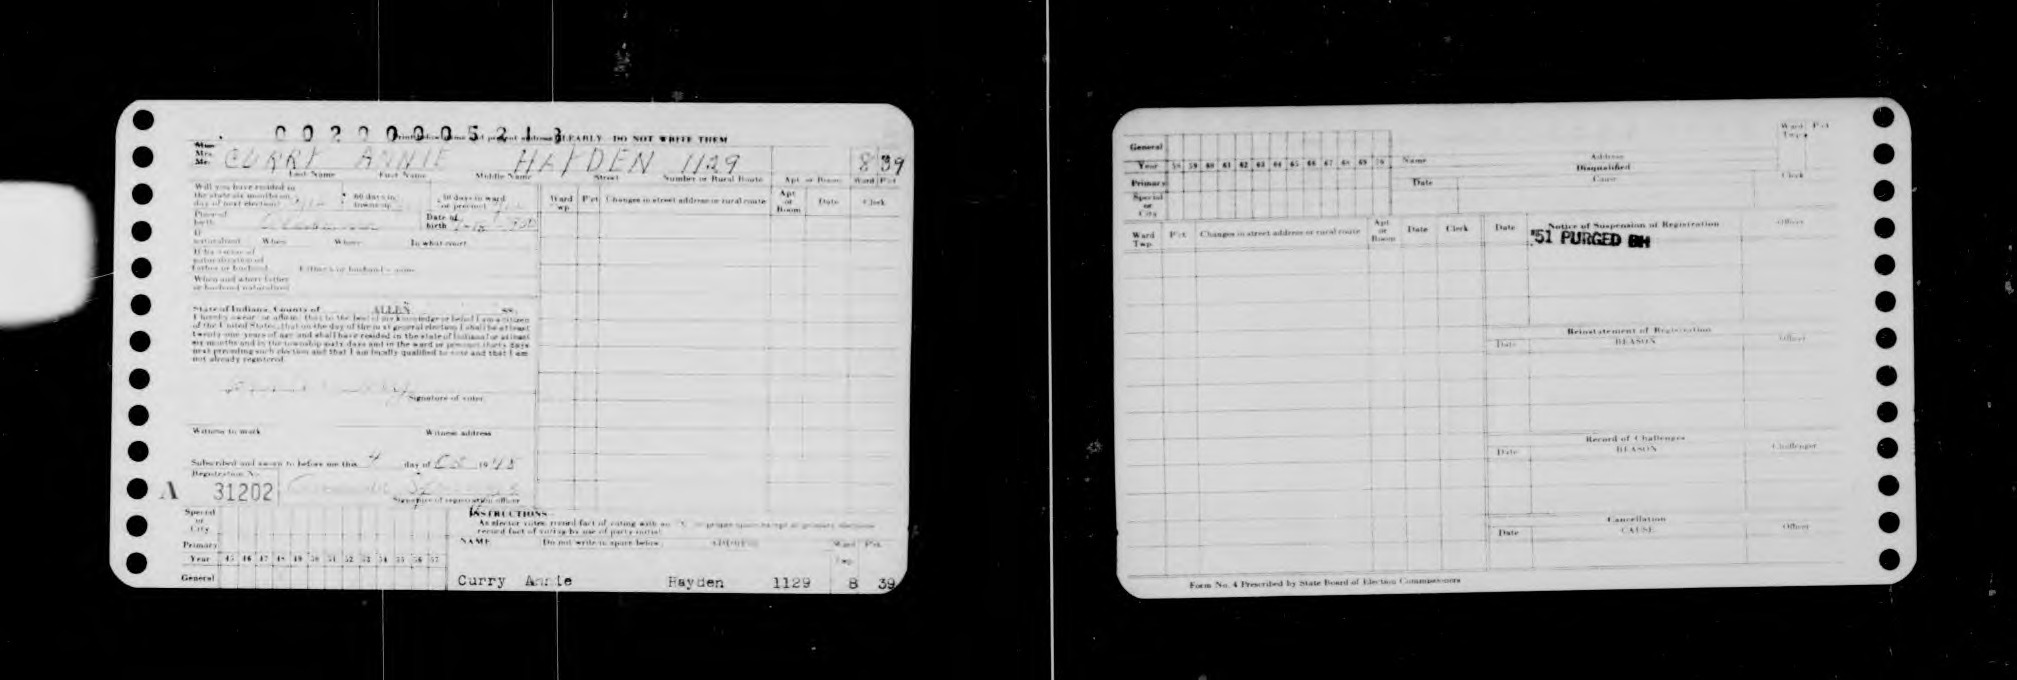 0 0 2 2 0 0 0 5 2 1 3
CLEARLY DO NOT WRITE THEM
Mrs.
Mr.
CURRY ANNIE HAYDEN 1129 8 39
Last Name First Name Middle Name Street Number or Rural Route Apt or Room Ward Pct
Will you have resided in
the state six months on
day of next election
60 days in
township
30 days in ward
or precinct
Place of
birth
Date of
birth
If
naturalized When Where In what court
If by virtue of
naturalization of
father or husband Father's or husband's name
When and where father
or husband naturalized
Ward
Twp.
Pct Changes in street address or rural route
Apt
or
Room
Date Clerk
State of Indiana, County of ALLEN SS.
I hereby swear or affirm, that to the best of my knowledge or belief I am a citizen
of the United States, that on the day of the next general election I shall be at least
twenty-one years of age and shall have resided in the state of Indiana for at least
six months and in the township sixty days and in the ward or precinct thirty days
next preceding such election and that I am legally qualified to vote and that I am
not already registered.
Signature of voter
Witness to mark Witness address
Subscribed and sworn to before me this 4 day of 19 48
Registration No.
A 31202
Signature of registration officer
Special
or
City
Primary
Year 45 46 47 48 49 50 51 52 53 54 55 56 57
General
INSTRUCTIONS
As elector votes, record fact of voting with an "X" in proper space except in primary elections
record fact of voting by use of party initial
NAME Do not write in space below ADDRESS Ward Pct.
Twp.
Curry Annie Hayden 1129 8 39
General
Year 58 59 60 61 62 63 64 65 66 67 68 69 70
Primary
Special
or
City
Name Address
Ward Pct
Twp.
Disqualified
Date Cause Clerk
Ward
Twp.
Pct. Changes in street address or rural route
Apt
or
Room
Date Clerk
Date Notice of Suspension of Registration Officer
'51 PURGED BH
Reinstatement of Registration
Date REASON Officer
Record of Challenges
Date REASON Challenger
Cancellation
Date CAUSE Officer
Form No. 4 Prescribed by State Board of Election Commissioners